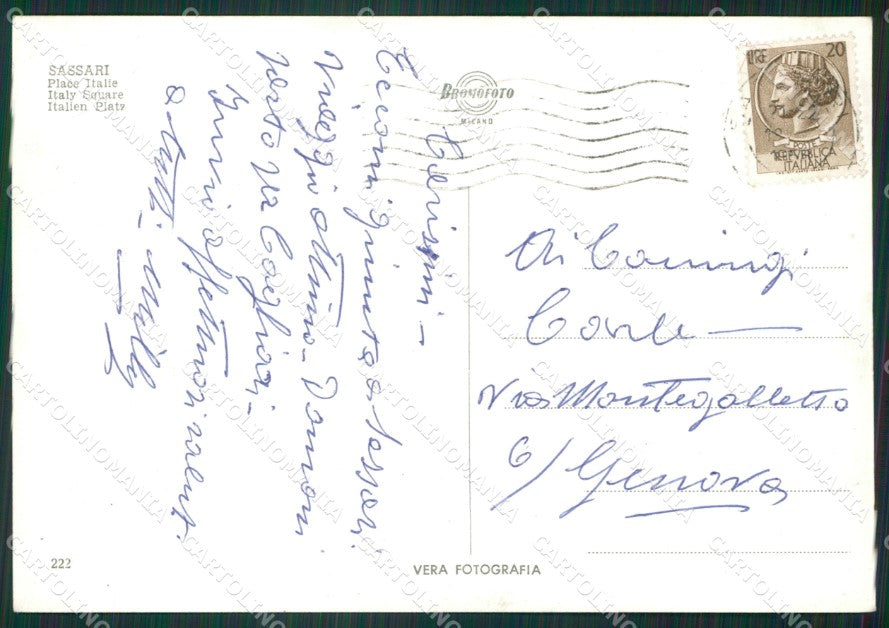 SASSARI
Place Italie
Italy Square
Italien Platz
BROMOFOTO
MILANO
LIRE 20
POSTE
REPVBBLICA
ITALIANA
Carissimi –
Eccomi giunta a Sassari.
Viaggio ottimo – Domani
parto per Cagliari –
Invio affettuosi saluti
a tutti – Milly
Ai Coniugi
Via Montegalletto
6/ Genova
222
VERA FOTOGRAFIA
CARTOLINOMANIA